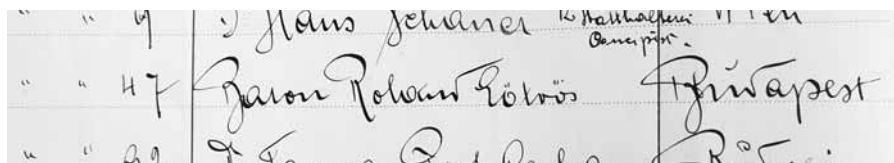 " " 9 Dr Hans Schauer K. Statthalterei Wien
Concipist.
" " 47 Baron Roland Eötvös Budapest
" " Dr